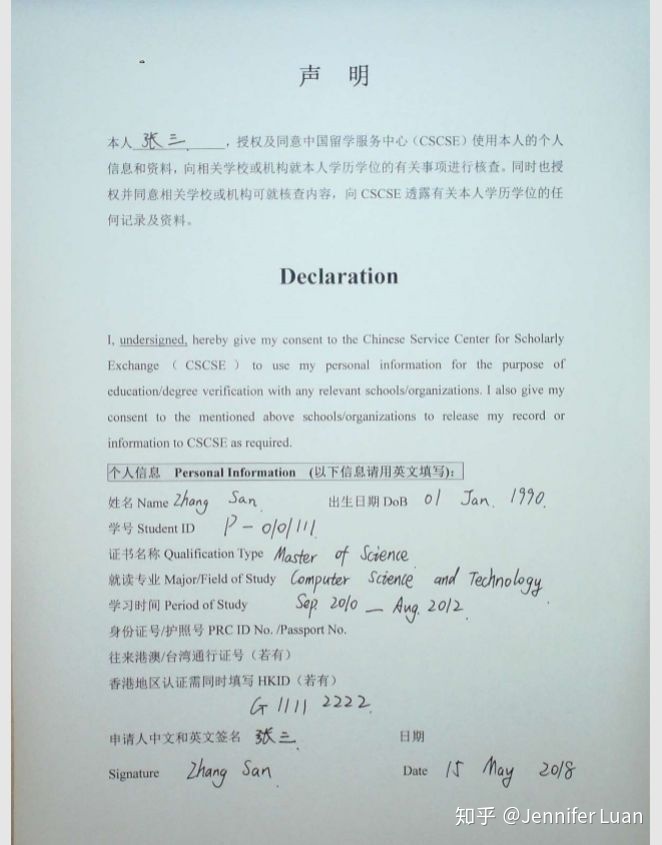 声 明
本人 张三 ，授权及同意中国留学服务中心（CSCSE）使用本人的个人
信息和资料，向相关学校或机构就本人学历学位的有关事项进行核查。同时也授
权并同意相关学校或机构可就核查内容，向 CSCSE 透露有关本人学历学位的任
何记录及资料。
Declaration
I, undersigned, hereby give my consent to the Chinese Service Center for Scholarly
Exchange （ CSCSE ） to use my personal information for the purpose of
education/degree verification with any relevant schools/organizations. I also give my
consent to the mentioned above schools/organizations to release my record or
information to CSCSE as required.
个人信息 Personal Information （以下信息请用英文填写）：
姓名 Name Zhang San 出生日期 DoB 01 Jan. 1990.
学号 Student ID P-010111
证书名称 Qualification Type Master of Science
就读专业 Major/Field of Study Computer Science and Technology
学习时间 Period of Study Sep. 2010 — Aug. 2012
身份证号/护照号 PRC ID No. /Passport No.
往来港澳/台湾通行证号（若有）
香港地区认证需同时填写 HKID（若有）
G 1111 2222
申请人中文和英文签名 张三 日期
Signature Zhang San Date 15 May 2018
知乎 @Jennifer Luan